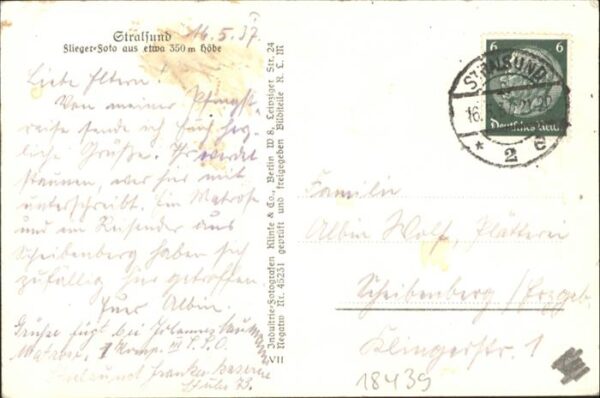 Stralsund 16.5.37
Flieger-Foto aus etwa 350 m Höhe
Liebe Eltern!
Von meiner Pfingst-
reise sende ich Euch herz-
liche Grüße. Ihr werdet
staunen, wer hier mit
unterschreibt. Ein Matrose
und ein Reisender aus
Scheibenberg haben sich
zufällig hier getroffen
Euer Albin.
Grüße fügt bei Johannes
Matrose, Komp.
Stralsund
Industrie-Fotografen Klinke & Co., Berlin W 8, Leipziger Str. 24
Negativ Nr. 45231 geprüft und freigegeben Bildstelle R. L. M
VII
6 6
Deutsches Reich
STRALSUND
16.
* 2
Familie
Albin Wolf, Plätterei
Scheibenberg /Erzgeb.
Klingerstr. 1
18439